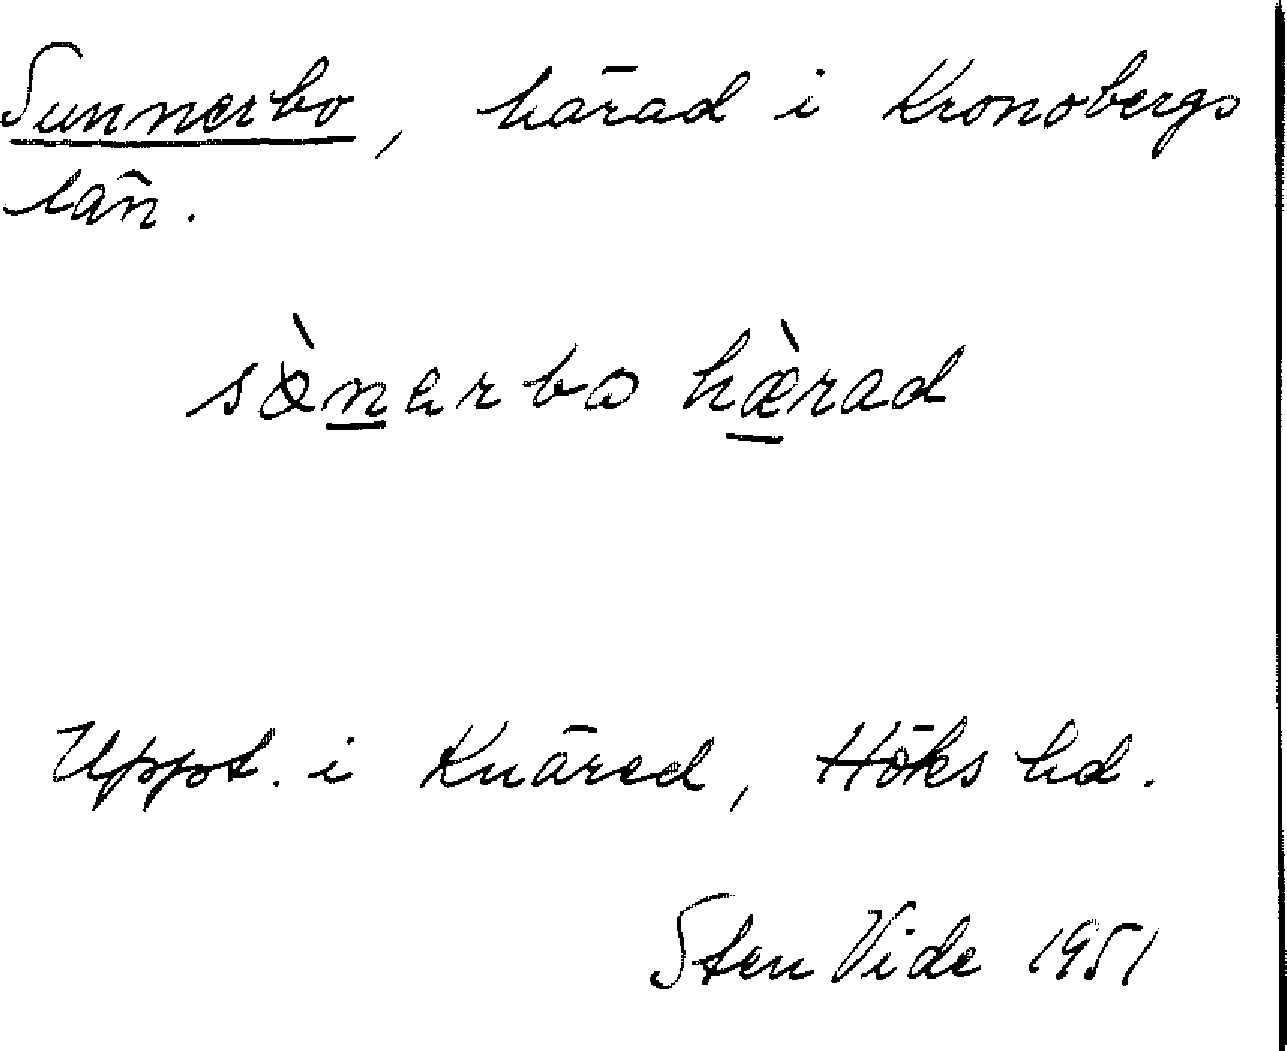 Sunnerbo, härad i Kronobergs
län.
sɷ̀nerbo hæ̀rad
Uppt. i Knäred, Höks hd.
Sten Vide 1951